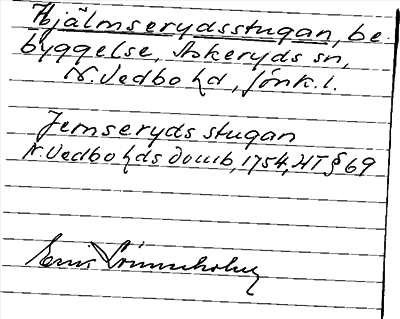 Hjälmserydsstugan, be
byggelse, Askeryds sn,
N. Vedbo hd, Jönk. l.
Jemseryds stugan
N. Vedbo hds domb, 1754, HT § 69